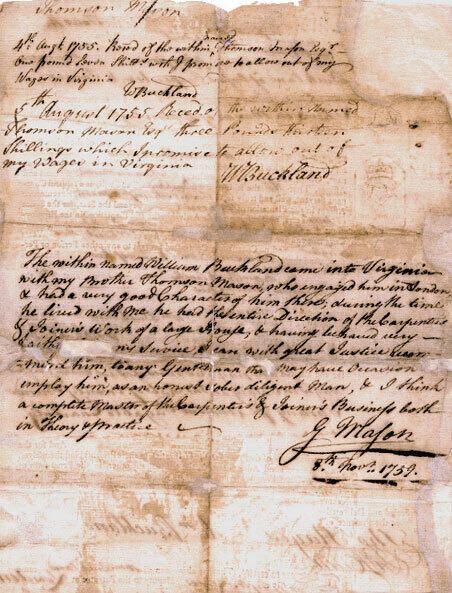 Thomson Mason
4th Augt 1755. Recd of the within named Thomson Mason Esqr
One pound Seven Shills wch I promise to allow out of my
Wages in Virginia
WBuckland
5th August 1755 Reced of the within Named
Thomson Mason Esqr three Pounds
Shillings which I promise to allow out of
my Wages in Virginia
WBuckland
The within named William Buckland came into Virginia
with my Brother Thomson Mason, who engaged him in London
& had a very good Character of him there; during the time
he lived with me he had the entire Direction of the Carpenters
& Joiners Work of a large House, & having behaved very
faith in my Service, I can with great Justice recom-
mend him, to any Gentleman that may have Occasion
employ him, as an honest sober diligent Man, & I think
a complete Master of the Carpenter's & Joiner's Business both
in Theory & practice
G Mason
8th Novr. 1759.